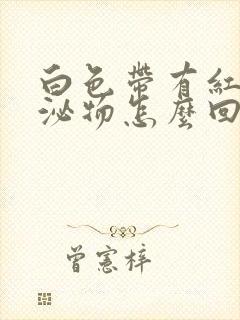 白色带有紅
泌物怎麼回
曾憲梓